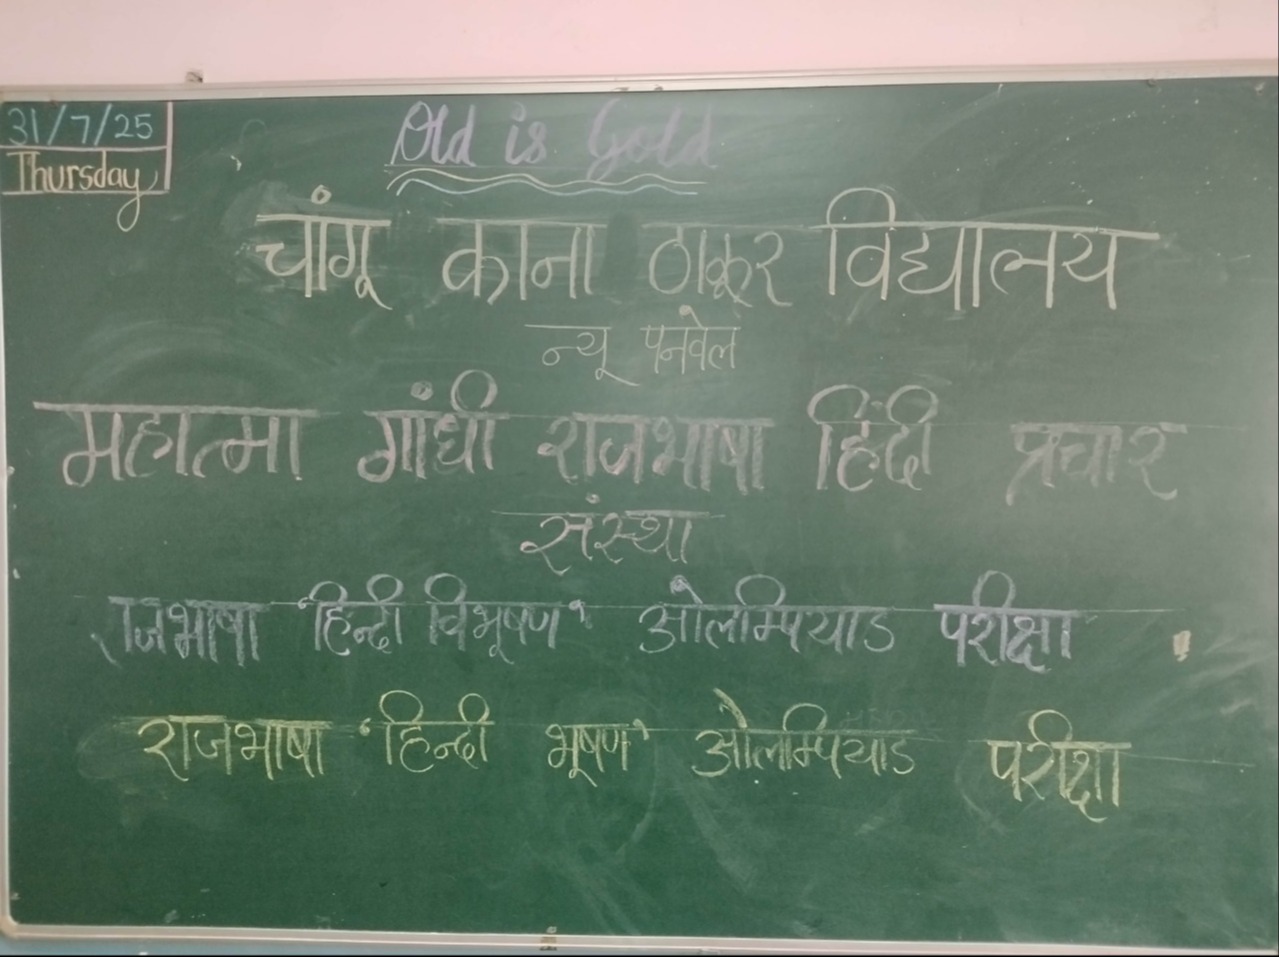 31/7/25
Thursday
Old is Gold
चांगू काना ठाकूर विद्यालय
न्यू पनवेल
महात्मा गांधी राजभाषा हिंदी प्रचार
संस्था
राजभाषा 'हिन्दी विभूषण' ओलम्पियाड परीक्षा
राजभाषा 'हिन्दी भूषण' ओलम्पियाड परीक्षा